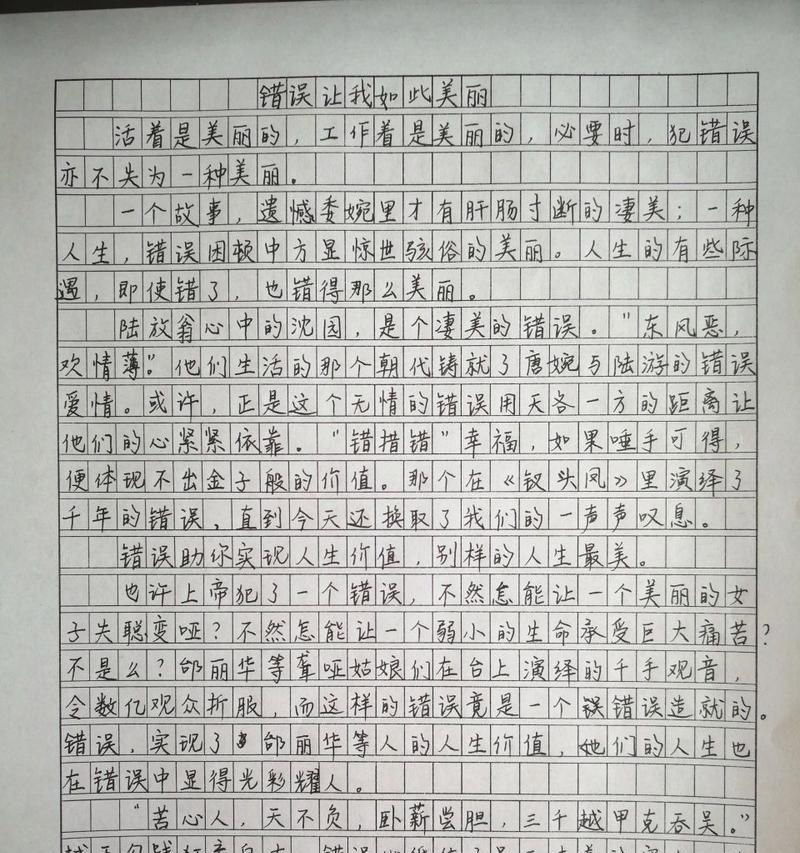 错误让我如此美丽
活着是美丽的，工作着是美丽的，必要时，犯错误
亦不失为一种美丽。
一个故事，遗憾委婉里才有肝肠寸断的凄美；一种
人生，错误困顿中方显惊世骇俗的美丽。人生的有些际
遇，即使错了，也错得那么美丽。
陆放翁心中的沈园，是个凄美的错误。"东风恶，
欢情薄"。他们生活的那个朝代铸就了唐婉与陆游的错误
爱情。或许，正是这个无情的错误用天各一方的距离让
他们的心紧紧依靠。"错措错"幸福，如果唾手可得，
便体现不出金子般的价值。那个在《钗头凤》里演绎了
千年的错误，直到今天还换取了我们的一声声叹息。
错误助你实现人生价值，别样的人生最美。
也许上帝犯了一个错误，不然怎能让一个美丽的女
子失聪变哑？不然怎能让一个弱小的生命承受巨大痛苦？
不是么？邰丽华等聋哑姑娘们在台上演绎的千手观音，
令数亿观众折服，而这样的错误竟是一个错误造就的。
错误，实现了邰丽华等人的人生价值，她们的人生也
在错误中显得光彩耀人。
"苦心人，天不负，卧薪尝胆，三千越甲克吞吴。"